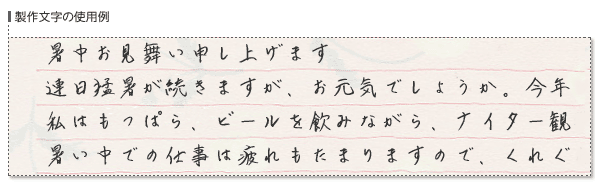 製作文字の使用例
暑中お見舞い申し上げます
連日猛暑が続きますが、お元気でしょうか。今年
私はもっぱら、ビールを飲みながら、ナイター観
暑い中での仕事は疲れもたまりますので、くれぐ